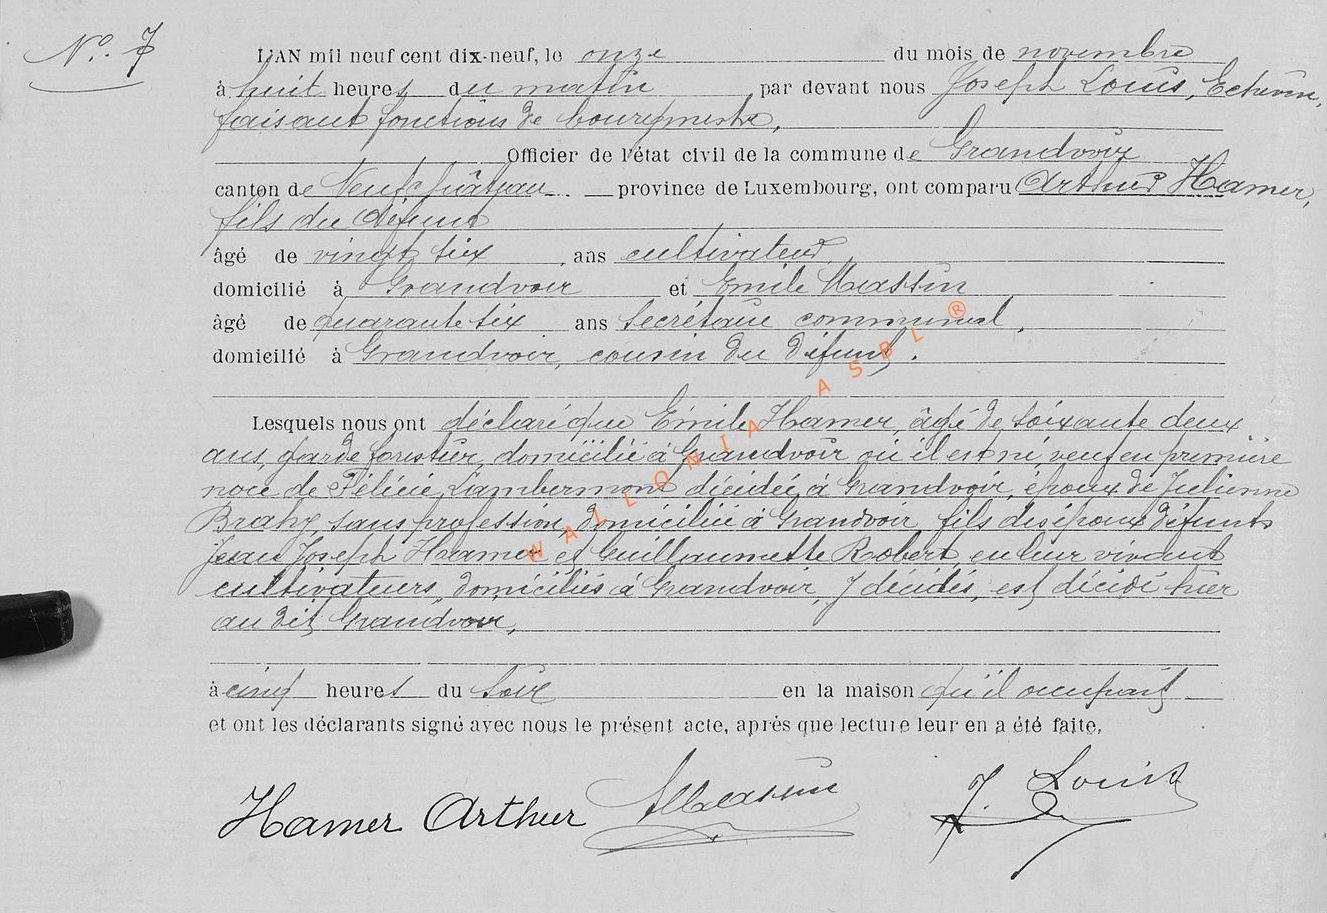 N° 7
L'AN mil neuf cent dix-neuf, le onze du mois de novembre
à huit heures du matin par devant nous Joseph Louis, Echevin,
faisant fonctions de bourgmestre,
Officier de l'état civil de la commune de Grandvoir
canton de Neufchâteau province de Luxembourg, ont comparu Arthur Hamer,
fils du défunt
âgé de vingt six ans cultivateur,
domicilié à Grandvoir et Emile Massin
âgé de quarante six ans Secrétaire communal,
domicilié à Grandvoir, cousin du défunt.
Lesquels nous ont déclaré que Emile Hamer, âgé de soixante deux
ans, garde forestier, domicilié à Grandvoir où il est né, veuf en première
noce de Félicie Lambermont décédée à Grandvoir, époux de Julienne
sans profession, domiciliée à Grandvoir, fils des époux défunts
Jean Joseph Hamer et Guillaumette Robert, en leur vivant
cultivateurs, domiciliés à Grandvoir, y décédés, est décédé hier
au dit Grandvoir,
à cinq heures du soir en la maison qu'il occupait
et ont les déclarants signé avec nous le présent acte, après que lecture leur en a été faite.
Hamer Arthur EMassin J. Louis
WALLONIA ASBL ®